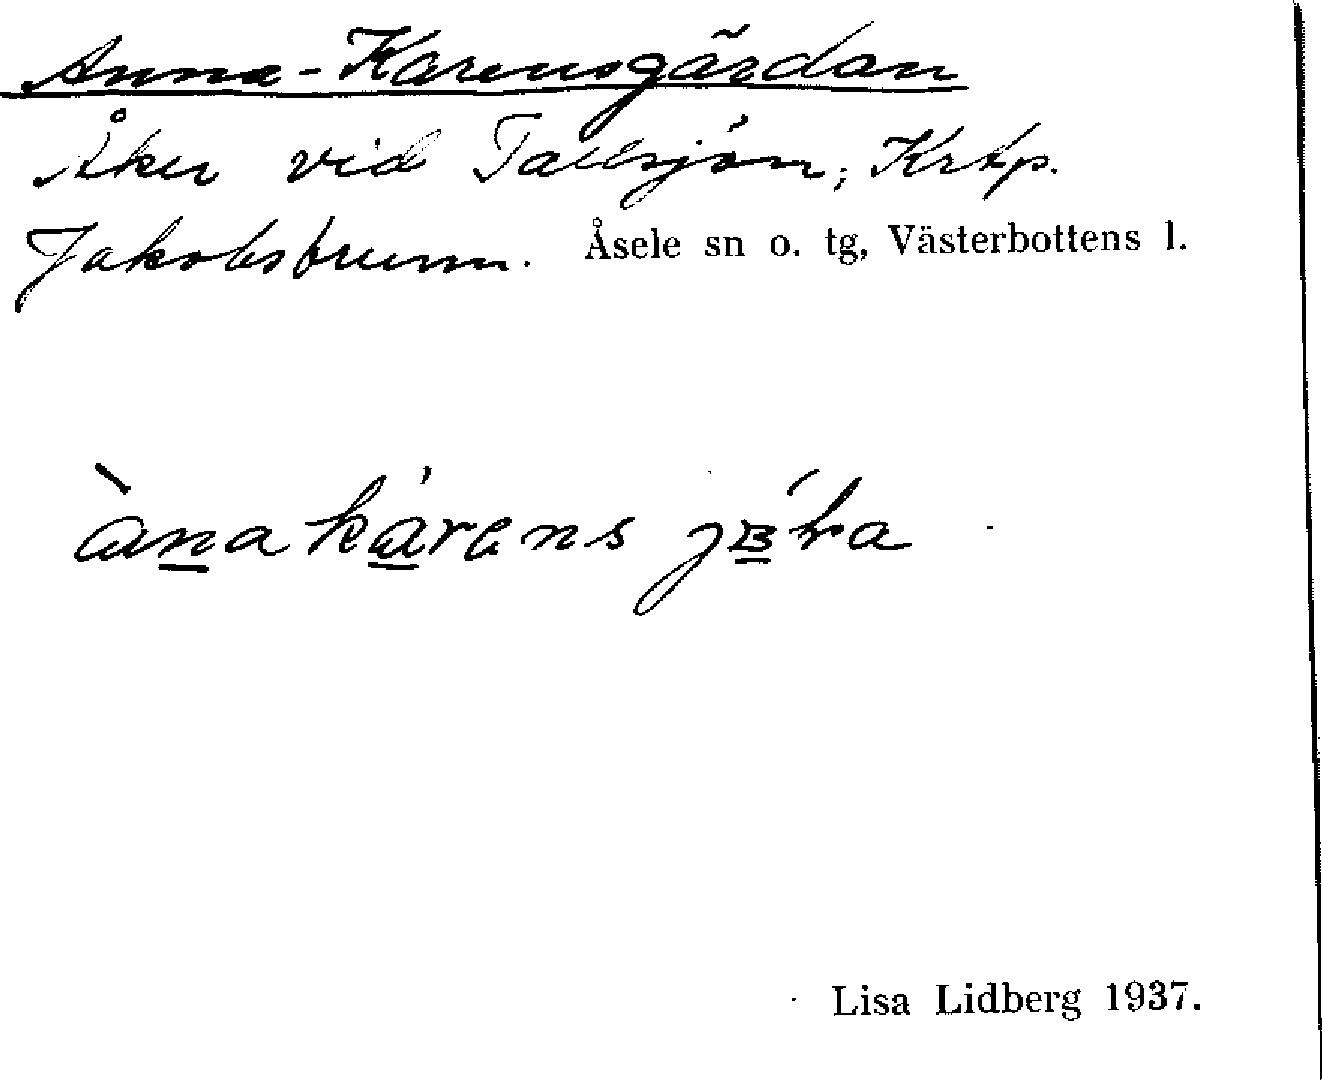 Anna-Karensgärdan
Åker vid Tallsjön, Krtp.
Jakobsbrunn. Åsele sn o. tg, Västerbottens l.
Lisa Lidberg 1937.